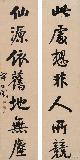 此處想非人所競
仙源依舊地無塵